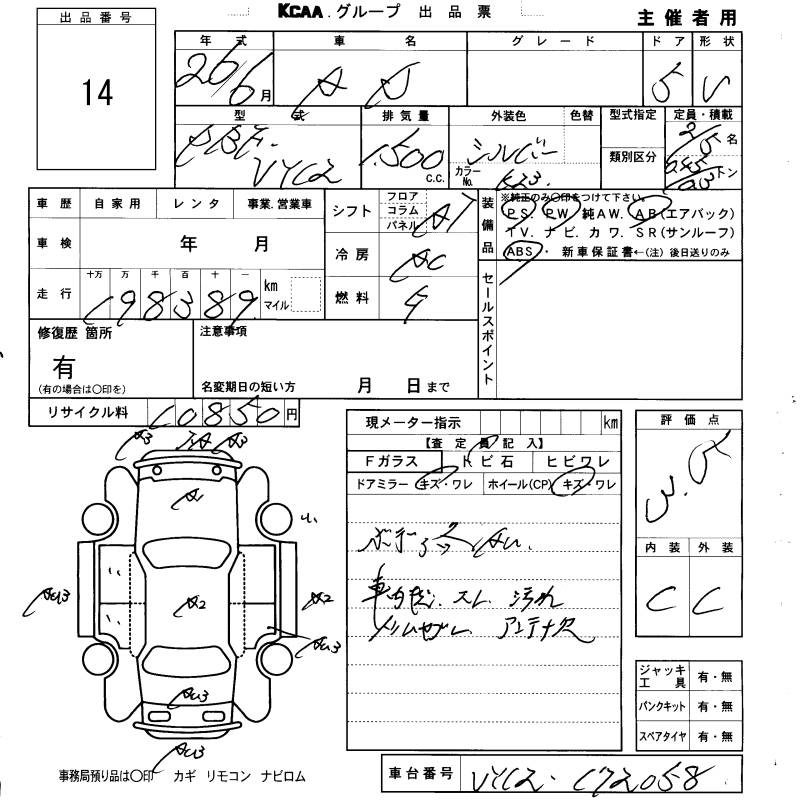 KCAA グループ 出品票
主催者用
出品番号
14
年式 車名 グレード ドア 形状
26/6 月 AD 5 V
型式 排気量 外装色 色替 型式指定 定員・積載
DBF- VY12 1500 c.c. シルバー カラーNo. K23 類別区分 2/5 名 トン
車歴 自家用 レンタ 事業.営業車
シフト フロア コラム パネル AT
装備品 ※純正のみ〇印をつけて下さい。
PS PW 純AW. AB(エアバック)
TV. ナビ. カワ. SR(サンルーフ)
ABS ・ 新車保証書←(注) 後日送りのみ
車検 年 月
冷房 AC
セールスポイント
走行 十万 万 千 百 十 一
198389 km マイル
燃料 G
修復歴 箇所
有
(有の場合は〇印を)
注意事項
名変期日の短い方 月 日まで
リサイクル料 10850 円
現メーター指示 km
【査定員記入】
Fガラス トビ石 ヒビワレ
ドアミラー キズ・ワレ ホイール(CP) キズ・ワレ
評価点
3.5
内装 外装
C C
A3 A3
A
AU3 A2 A2
AU3
AU3
AU3
ボデーコケ AU.
車内キズ. スレ 汚れ
アンテナ欠
ジャッキ工具 有・無
パンクキット 有・無
スペアタイヤ 有・無
事務局預り品は〇印 カギ リモコン ナビロム
車台番号 VY12-172058